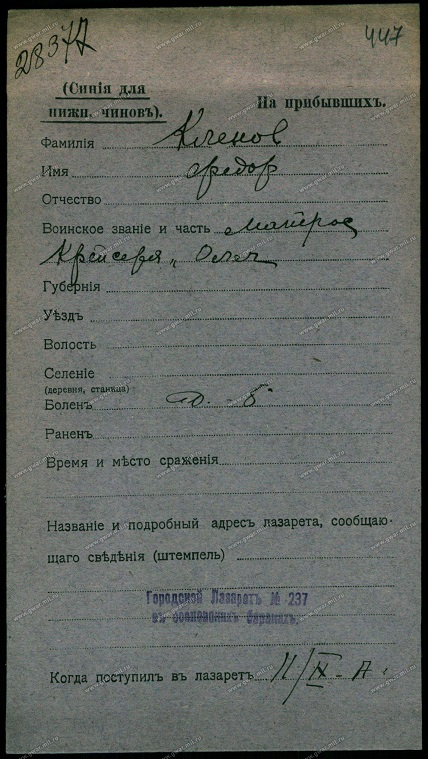 447
(Синія для
нижн. чиновъ).
На прибывшихъ.
Фамилія Кленов
Имя Федор
Отчество
Воинское званіе и часть Матрос
Крейсера „Олег
Губернія
Уѣздъ
Волость
Селеніе
(деревня, станица)
Боленъ
Раненъ
Время и мѣсто сраженія
Названіе и подробный адресъ лазарета, сообщаю-
щаго свѣдѣнія (штемпель)
Городской Лазаретъ № 237
въ баракахъ.
Когда поступилъ въ лазаретъ 11/IX-